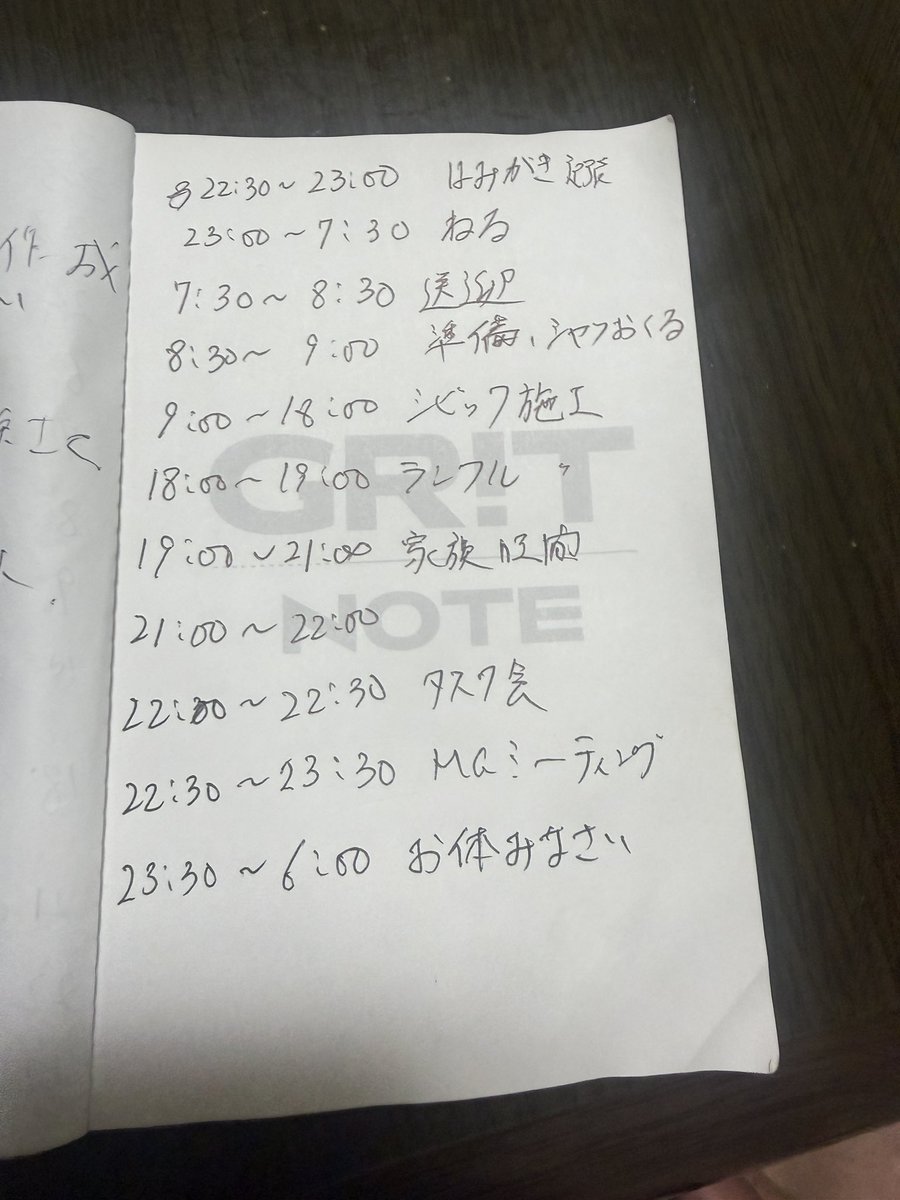 22:30～23:00 はみがき
23:00～7:30 ねる
7:30～8:30 送迎
8:30～ 9:00 準備、シャフおくる
9:00～18:00 シビック施工
18:00～19:00 ランフル 〃
GR!T
19:00～21:00 家族時間
NOTE
21:00～22:00
22:00～22:30 タスク会
22:30～23:30 MGミーティング
23:30～6:00 お休みなさい
作成